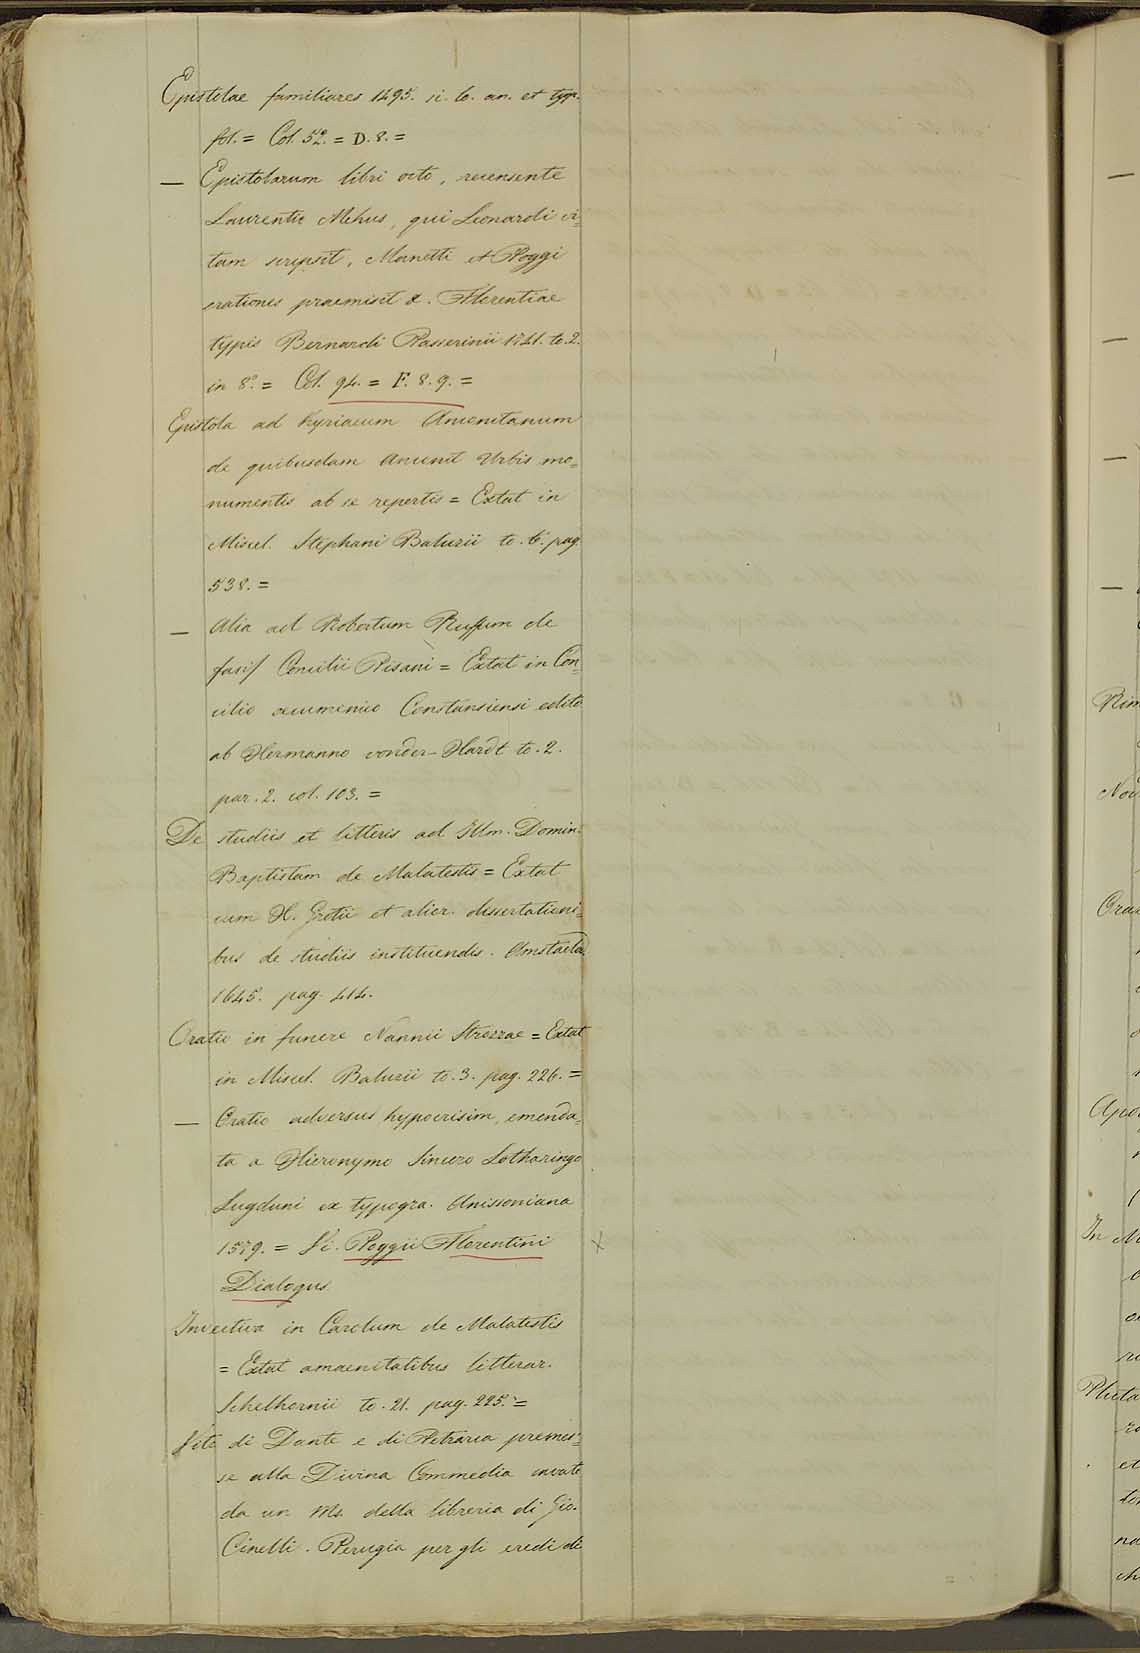 Epistolae familiares 1495. si. lo. an. et typ.
fol. = Col. 52. = D. 8. =
— Epistolarum libri octo, recensente
Laurentio Mehus, qui Leonardi vi=
tam scripsit, Manetti et Poggi
orationes praemisit &. Florentiae
typis Bernardi Paperinii 1741. to. 2.
in 8.° = Col. 94. = F. 8. 9. =
Epistola ad Kyriacum Anconitanum
de quibusdam Urbis mo=
numentis ab se repertis = Extat in
Miscel. Stephani Baluzii to. 6. pag.
538. =
— Alia ad Robertum Ruffum de
Concilii Pisani = Extat in Con=
cilio oecumenico Constansiensi edito
ab Hermanno vonder-Hardt to. 2.
par. 2. col. 103. =
De studiis et litteris ad Illm. Domin.
Baptistam de Malatestis = Extat
cum H. Grotii et alior. dissertationi=
bus de studiis instituendis. Amstaelod.
1645. pag. 414.
Oratio in funere Nannii Strozzae = Extat
in Miscel. Baluzii to. 3. pag. 226. =
— Oratio adversus hypocrisim, emenda=
ta a Hieronymo Sincero Lotharingo
Lugduni ex typogra. Anissoniana
1579. = Vi. Poggii Florentini
x
Dialogus.
Invectiva in Carolum de Malatestis
= Extat amaenitatibus litterar.
Schelhornii to. 21. pag. 225. =
Vite di Dante e di Petrarca premes=
se alla Divina Commedia cavate
da un Ms. della libreria di Gio.
Cinelli. Perugia per gli eredi di